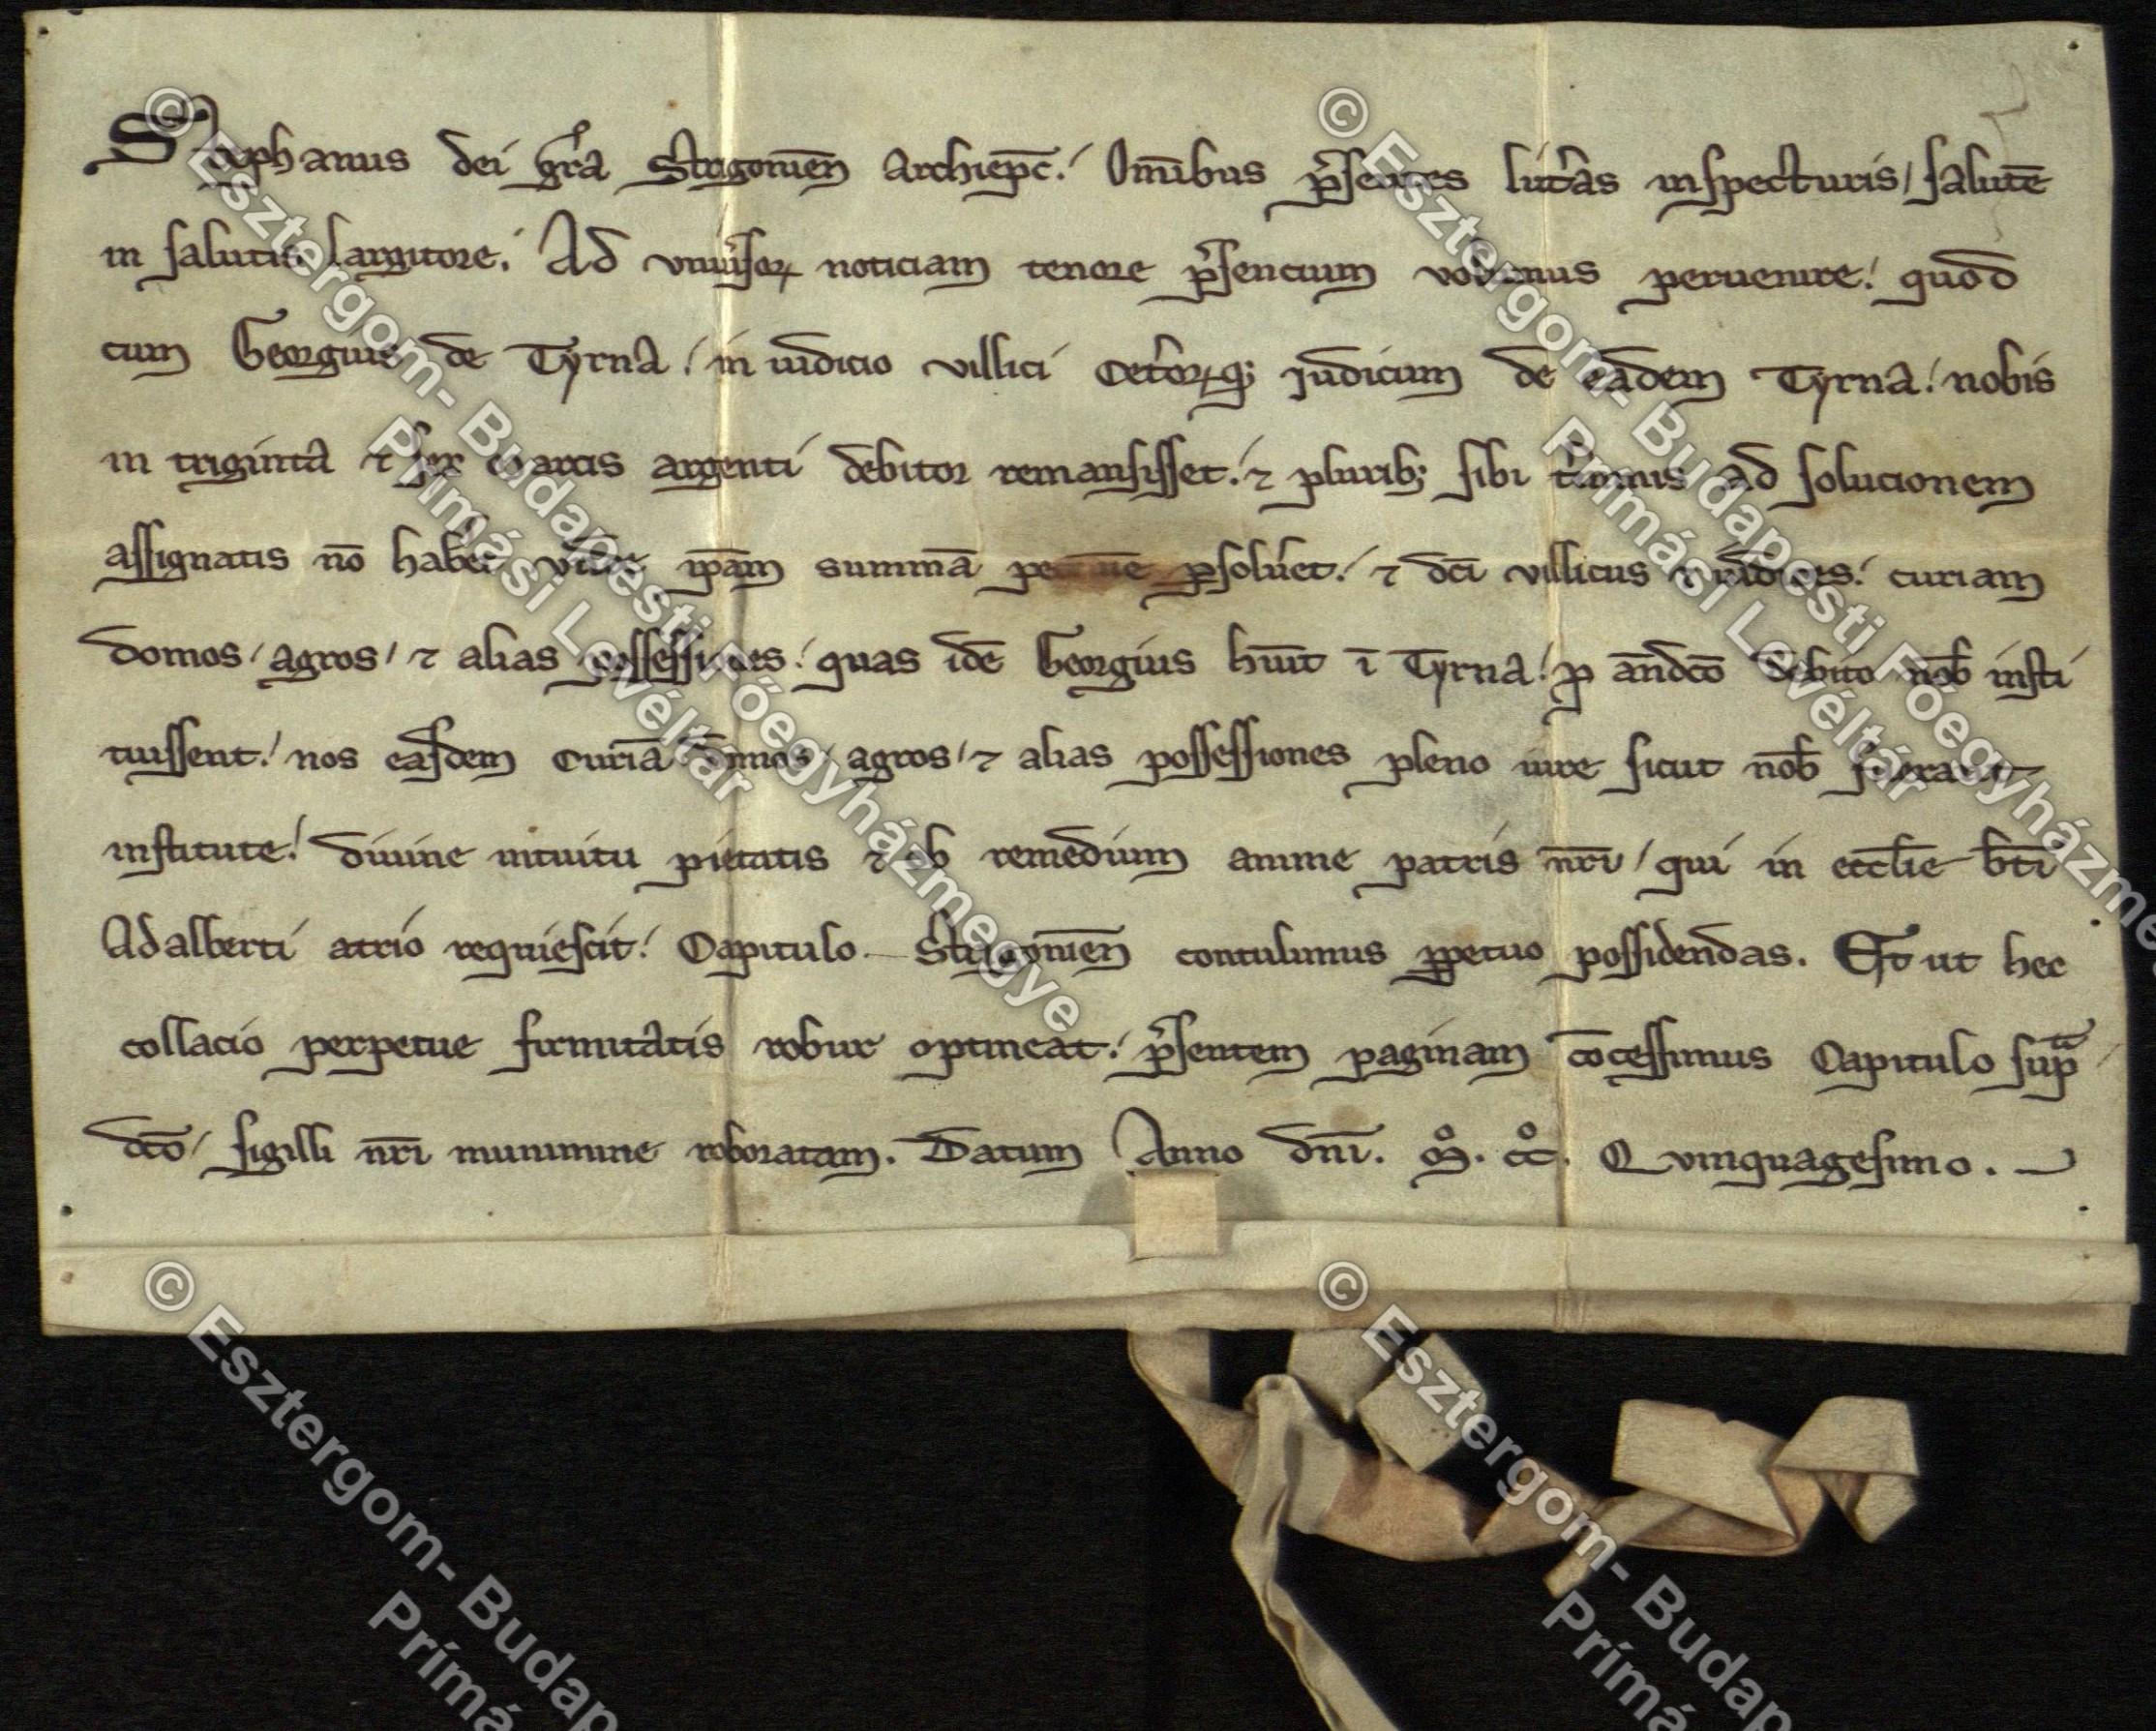 Stephanus dei gr̄a Strigonien̄ Archiep̄c. Om̄ibus p̄sentes litt̄as inspecturis, salutē
in salutis largitore. Ad vniu̓soꝝ noticiam tenore p̄sencium volumus peruenire. quod
cum Georgius de Tyrna. in iudicio villici Cet̓oꝝqꝫ Judicum de eadem Tyrna. nobis
in triginta ⁊ sex marcis argenti debitor remansisset. ⁊ pluribꝫ sibi t̓minis ad solucionem
assignatis nō haberet vnde ip̄am summā pecunie ꝑsolu̓et. ⁊ dc̄i villicus ⁊ iudices. curiam
domos, agros, ⁊ alias possessiones. quas idē Georgius hūit ī Tyrna. ꝓ an̄dc̄o debito nob̄ insti
tuissent. nos easdem Curiā domos, agros, ⁊ alias possessiones pleno iure sicut nob̄ fuerant
institute. diuine intuitu pietatis ⁊ ob remedium anime patris nr̄i, qui in eccl̄ie bt̄i
Adalberti atrio requiescit. Capitulo Strigonien̄ contulimus ꝑpetuo possidendas. Et ut hec
collacio perpetue firmitatis robur optineat. p̄sentem paginam cōcessimus Capitulo sup̄ᵃ
dc̄o, sigilli nr̄i munimine roboratam. Datum Anno dn̄i. M̊. CC̊. Quinquagesimo.
© Esztergom-Budapesti Főegyházmegye
Prímási Levéltár
© Esztergom-Budapesti Főegyházme
Prímási Levéltár
© Esztergom-Budap
Prímá
© Esztergom-Budap
Prímá